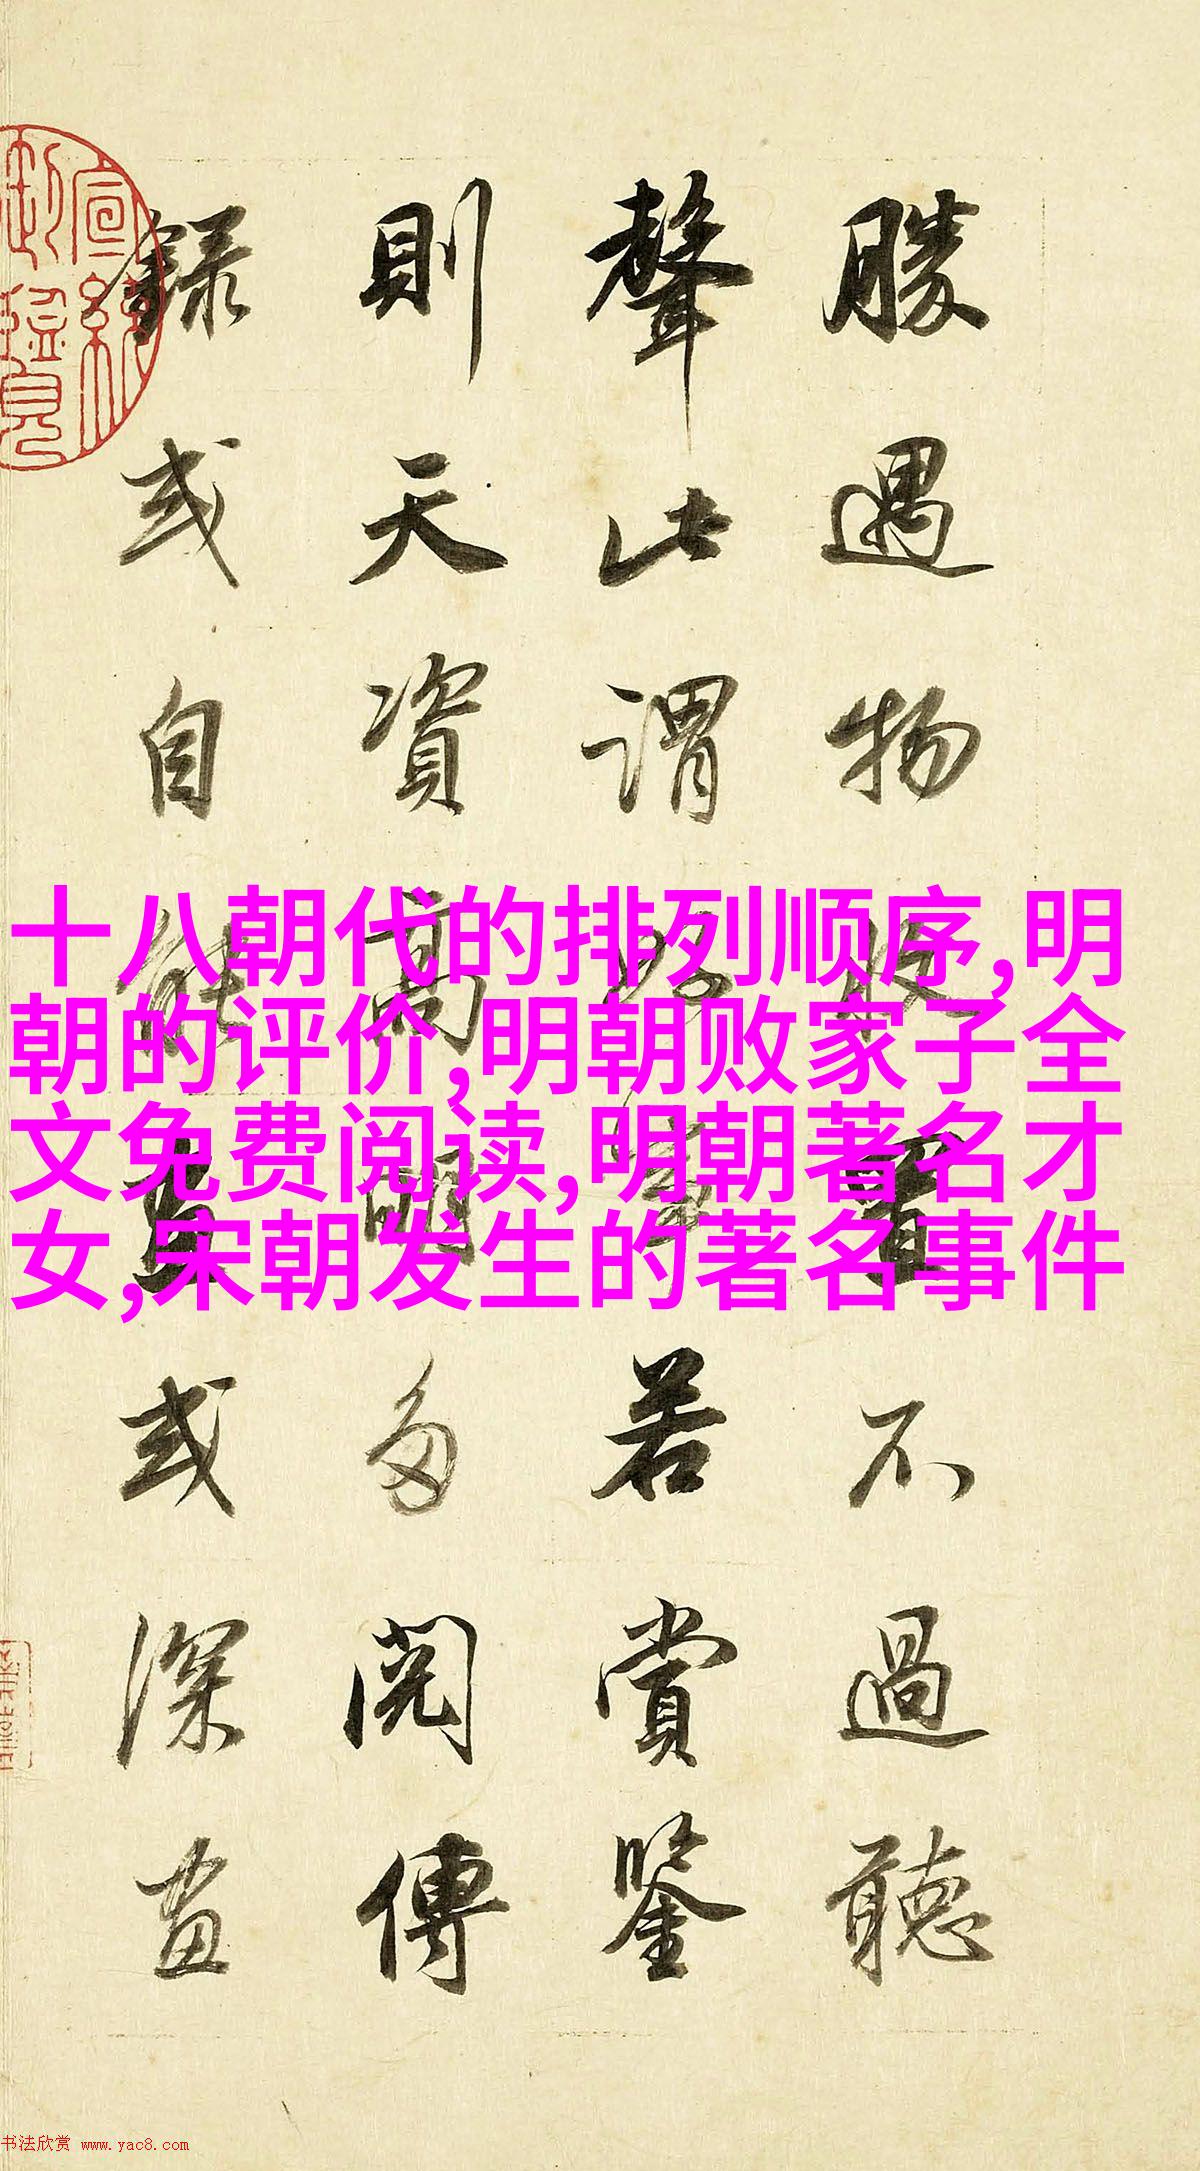 勝遇物收置不過聽
聲此謂好事若賞鑒
則天資高明多閱傳
錄或自能畫或深畫
宣統
御覽
十八朝代的排列顺序,明
朝的评价,明朝败家子全
文免费阅读,明朝著名才
女,宋朝发生的著名事件
书法欣赏 www.yac8.com